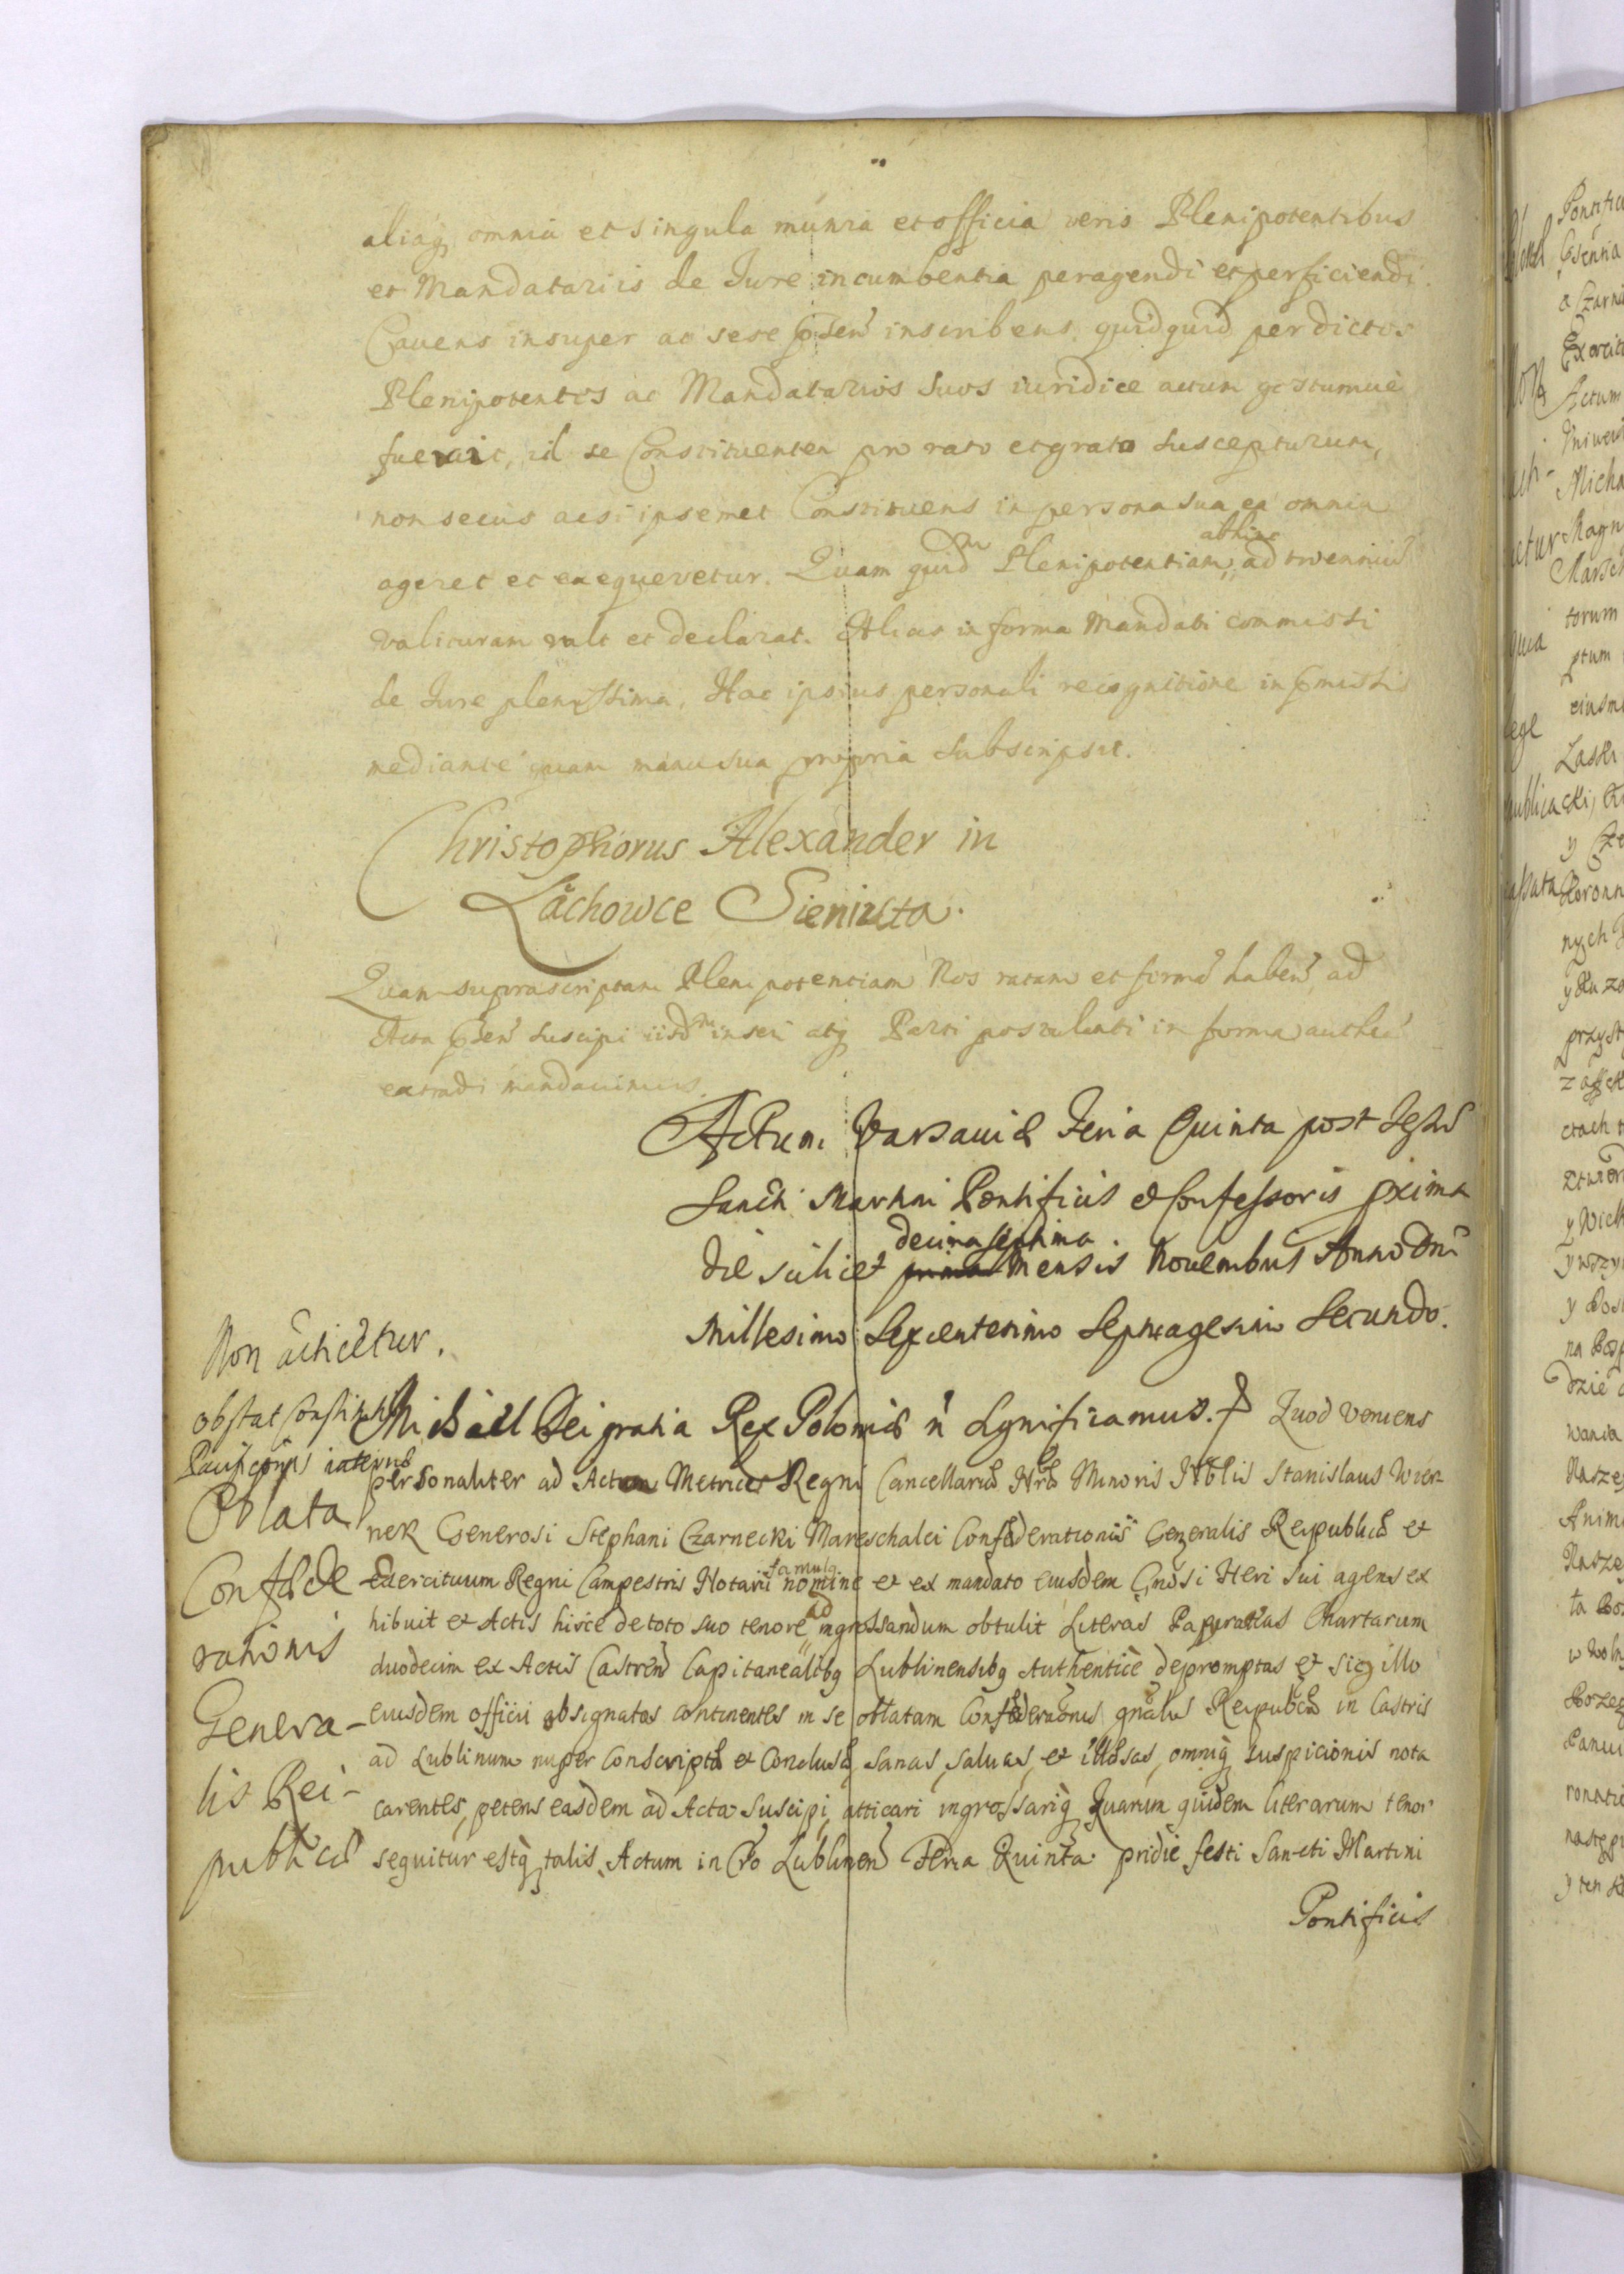 aliaq omnia et singula munia et officia veris Plenipotentibus
et Mandatariis de Iure incumbentia peragendi et perficiendi.
Cavens insuper ac sese pñ inscribens quidquid per dictos
Plenipotentes ac Mandatarios suos iuridice actum gestumue
fuerit, id se Constituentem pro rato et grato suscepturum,
non secus ac si ipsemet Constituens in persona sua ea omnia
ageret et exequeretur. Quam quidm Plenipotentiam abhinc ad triennium
valituram vult et declarat. Alias in forma Mandati commissi
de Iure plenissima, Hac ipsius personali recognitione in pmissis
mediante quam manu sua propria subscripsit.
Christophorus Alexander in
Lachowce Sieniuta.
Quam suprascriptam Plenipotentiam Nos ratam et firmã habeñ, ad
Acta pñ suscipi iisdm inseri atq Parti postulanti in forma authen
extradi mandavimus.
Actum Varsaviæ Feria Quinta post Festũ
Sancti Martini Pontificis et Confessoris pxima
die scilicet prima decima septima. Mensis Novembris Anno Dni
Millesimo Sexcentesimo Septuagesimo Secundo.
Non acticetur.
obstat Constituti
Pacificõnis internæ
Oblata
Confæde
rationis
Genera-
lis Rei-
publicæ
Michael Dei gratia Rex Poloniæ Significamus. Quod veniens
personaliter ad Acta Metrices Regni Cancellariæ Nræ Minoris Nblis Stanislaus Wier
nek Generosi Stephani Czarnecki Mareschalci Confæderationis Generalis Reipublicæ et
Exercituum Regni Campestris Notarii famulus nomine et ex mandato eiusdem Gnosi Heri sui agens ex
hibuit et Actis hisce de toto suo tenore ad ingrossandum obtulit Literas Papirateas Chartarum
duodecim ex Actis Castreñ Capitanealibq Lublinensibq Authentice depromptas et sigillo
eiusdem officii obsignatas continentes in se oblatam Confæderaõnis gnalis Reipubcæ in Castris
ad Lublinum nuper Conscriptæ et Conclusæ, sanas, saluas, et illæsas, omniq suspicionis nota
carentes, petens easdem ad Acta Suscipi, atticari ingrossariq Quarum quidem literarum tenor
sequitur estq talis. Actum in Cro Lublineñ Feria Quinta pridie festi Sancti Martini
Pontificis